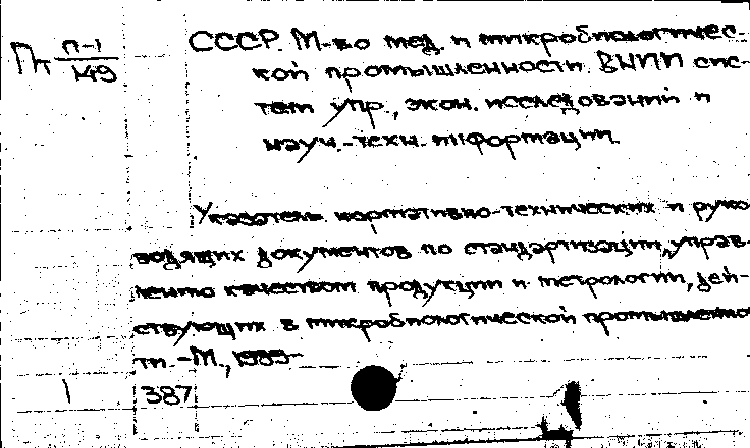 Пт п-1
149
СССР. М-во мед. и микробиологичес-
кой промышленности. ВНИИ сис-
тем упр., экон. исследований и
науч.-техн. информации.
Указатель нормативно-технических и руко-
водящих документов по стандартизации, управ-
лению качеством продукции и метрологии, дей-
ствующих в микробиологической промышленнос
ти. - М., 1989-
1 387